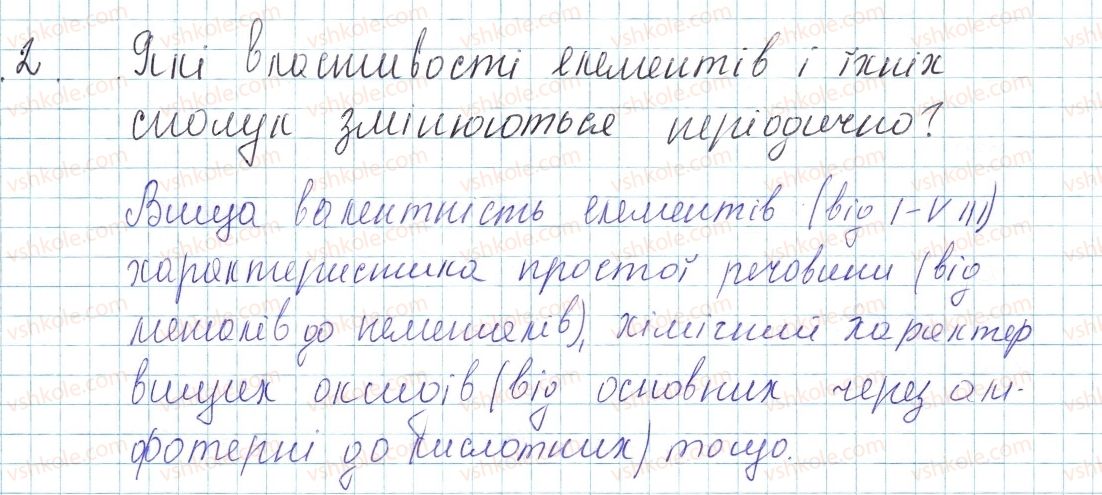 2. Які властивості елементів і їхніх
сполук змінюються періодично?
Вища валентність елементів (від I-VIII)
характеристика простої речовини (від
металів до неметалів), хімічний характер
вищих оксидів (від основних через ам-
фотерні до кислотних) тощо.